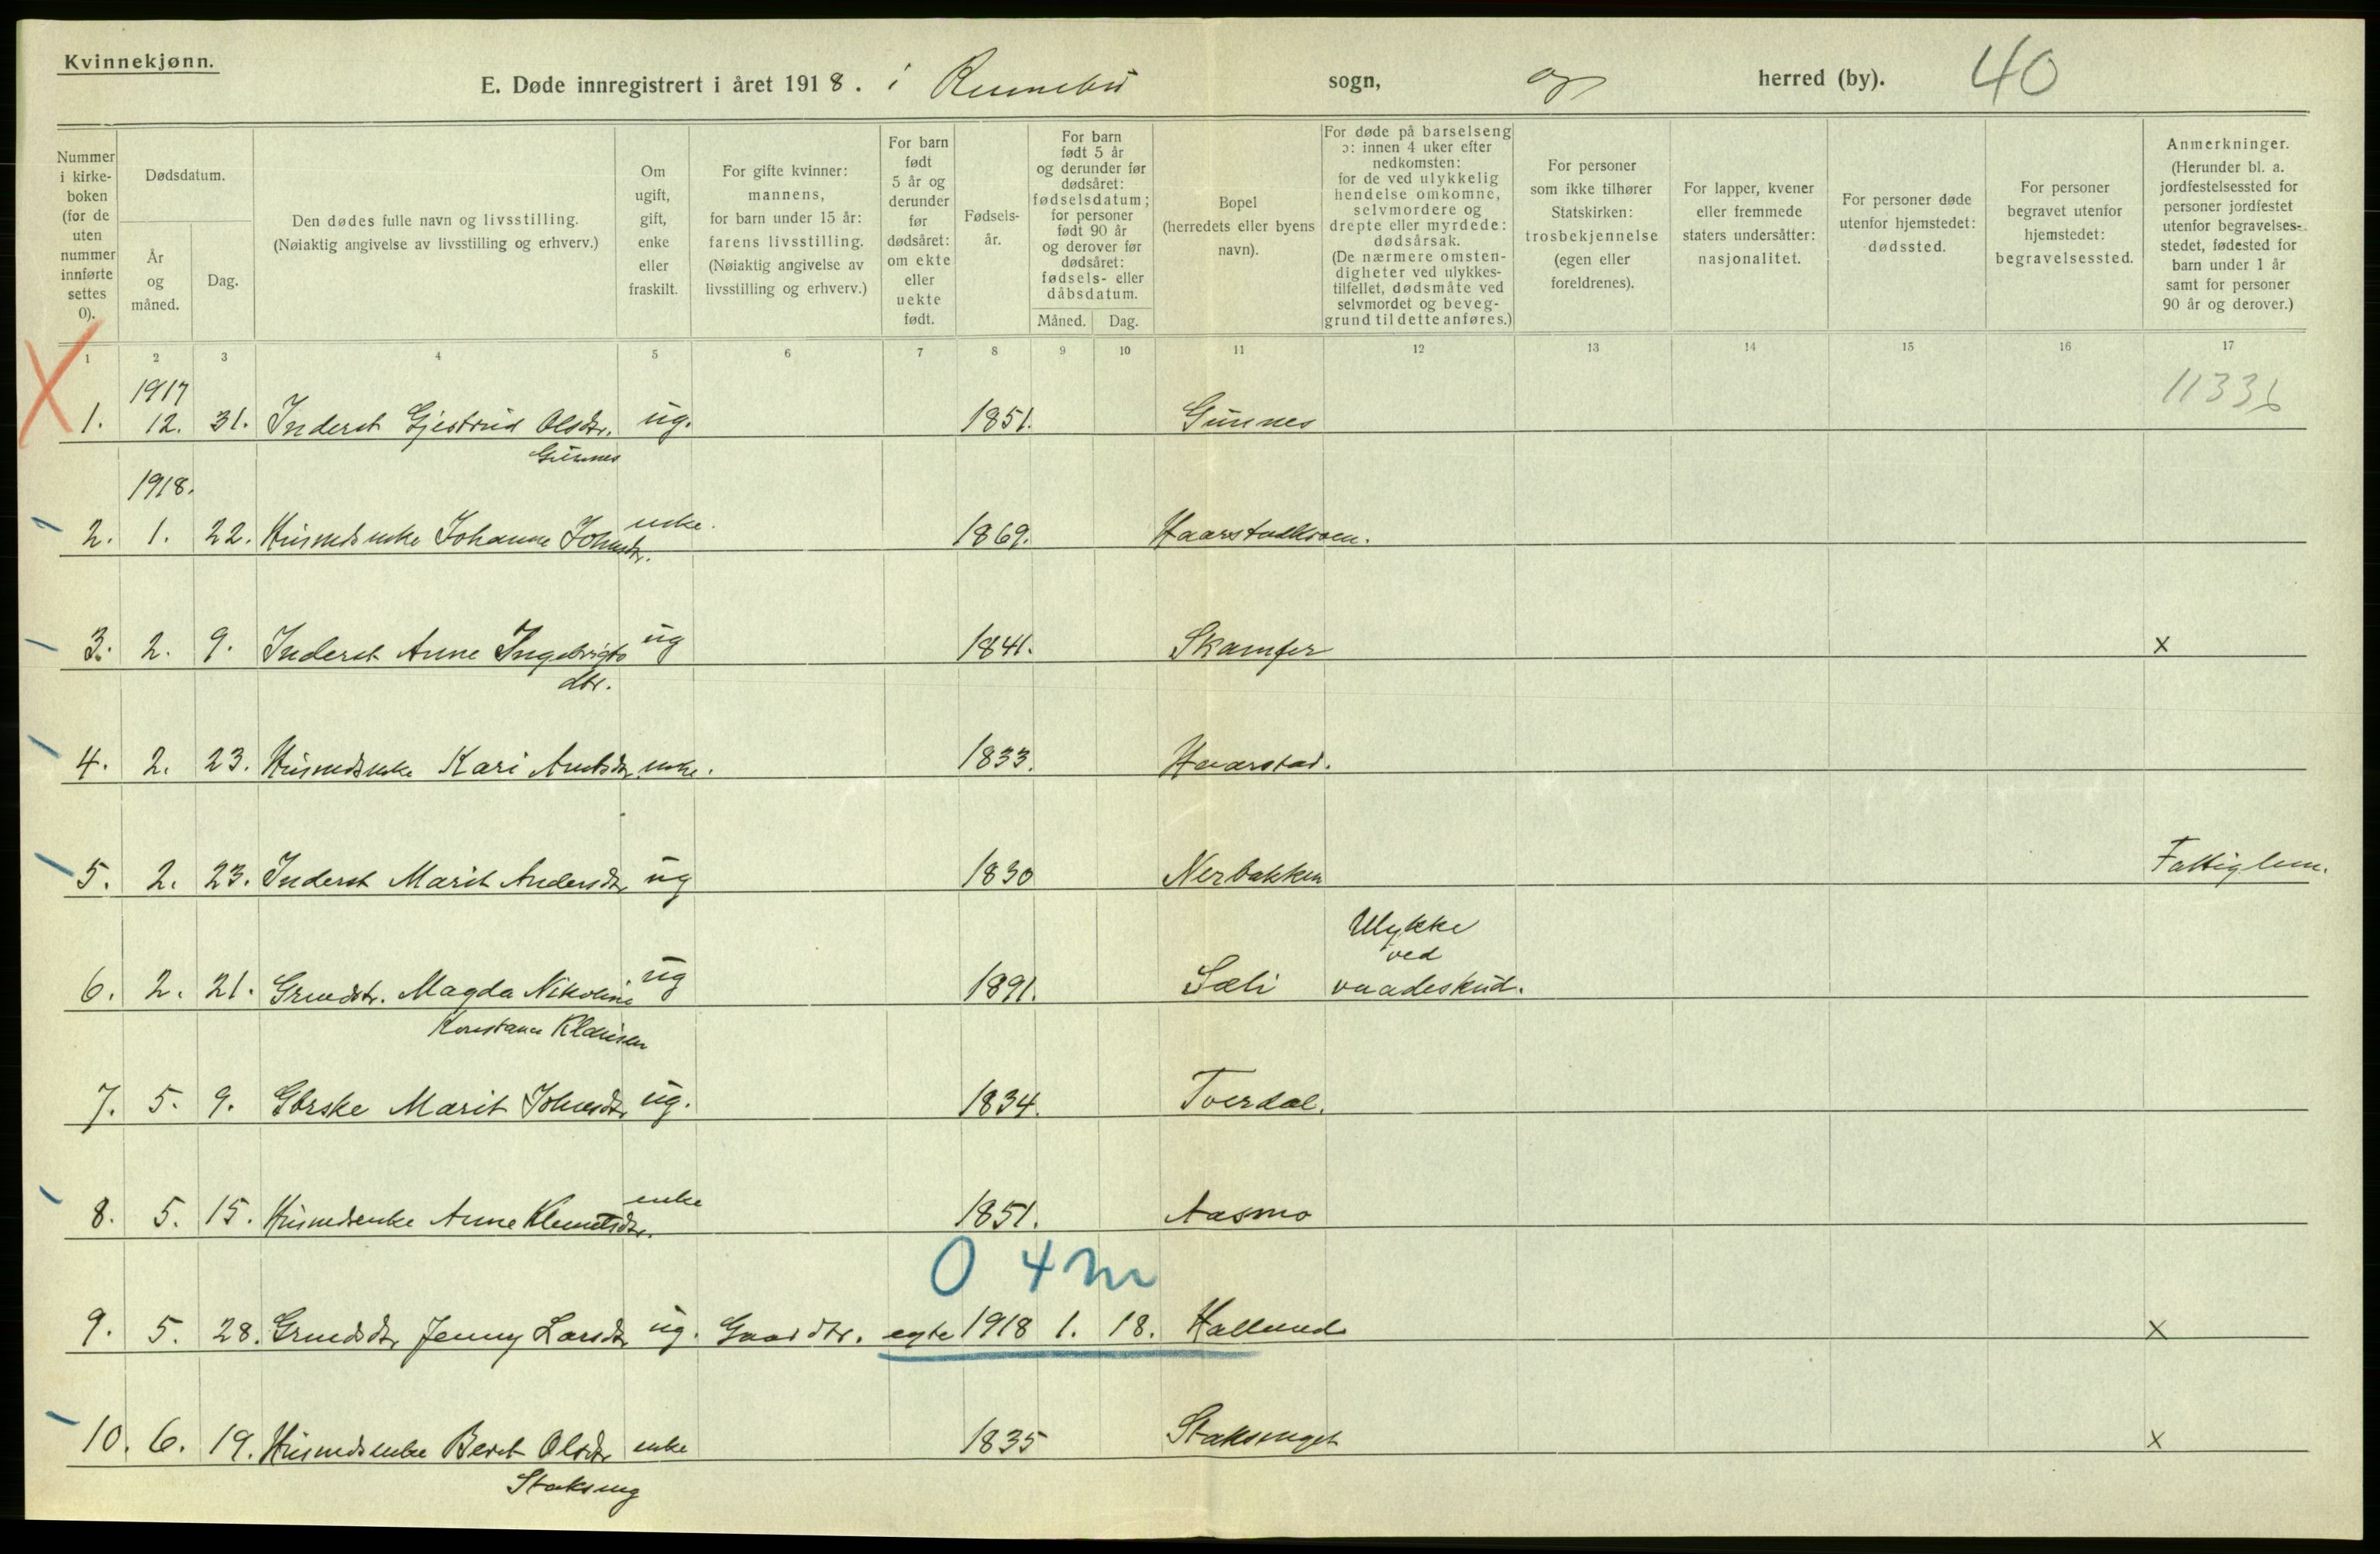 Kvinnekjønn.
E. Døde innregistrert i året 1918. i Rennebu sogn, og herred (by). 40
Nummer i kirke-boken (for de uten nummer innførte settes 0).
Dødsdatum.
År og måned.
Dag.
Den dødes fulle navn og livsstilling. (Nøiaktig angivelse av livsstilling og erhverv.)
Om ugift, gift, enke eller fraskilt.
For gifte kvinner: mannens, for barn under 15 år: farens livsstilling. (Nøiaktig angivelse av livsstilling og erhverv.)
For barn født 5 år og derunder før dødsåret: om ekte eller uekte født.
Fødsels-år.
For barn født 5 år og derunder før dødsåret: fødselsdatum; for personer født 90 år og derover før dødsåret: fødsels- eller dåbsdatum.
Måned. Dag.
Bopel (herredets eller byens navn).
For døde på barselseng ɔ: innen 4 uker efter nedkomsten: for de ved ulykkelig hendelse omkomne, selvmordere og drepte eller myrdede: dødsårsak. (De nærmere omsten-digheter ved ulykkes-tilfellet, dødsmåte ved selvmordet og beveg-grund til dette anføres.)
For personer som ikke tilhører Statskirken: trosbekjennelse (egen eller foreldrenes).
For lapper, kvener eller fremmede staters undersåtter: nasjonalitet.
For personer døde utenfor hjemstedet: dødssted.
For personer begravet utenfor hjemstedet: begravelsessted.
Anmerkninger. (Herunder bl. a. jordfestelsessted for personer jordfestet utenfor begravelses-stedet, fødested for barn under 1 år samt for personer 90 år og derover.)
1 2 3 4 5 6 7 8 9 10 11 12 13 14 15 16 17
1917 1133
1. 12. 31. Inderst Gjertrud Olsdtr. ug. 1851. Gunnes
Gunnes
1918.
2. 1. 22. Husmdsenke Johanne Johnsdtr. enke. 1869. Haarstadkroen.
3. 2. 9. Inderst Anne Ingebrigts ug 1841. Skamfer x
dtr.
4. 2. 23. Husmdsenke Kari Arntsdtr. enke. 1833. Haarstad.
5. 2. 23. Inderst Marit Andersdtr ug 1830 Nerbakken Fattiglem.
Ulykke
ved
6. 2. 21. Grmdstr. Magda Nikoline ug 1891. Sæli vaadeskud.
Konstanse Klausen
7. 5. 9. Gbrske Marit Johnsdtr ug. 1834. Tverdal.
8. 5. 15. Husmdsenke Anne Klemetsdtr. enke 1851. Aasmo
0 4 m
9. 5. 28. Grmdsdtr Jenny Larsdtr ug. Gaardbr. egte 1918 1. 18. Hallund x
10. 6. 19. Husmdsenke Beret Olsdtr enke 1835 Staksenget x
Stakseng